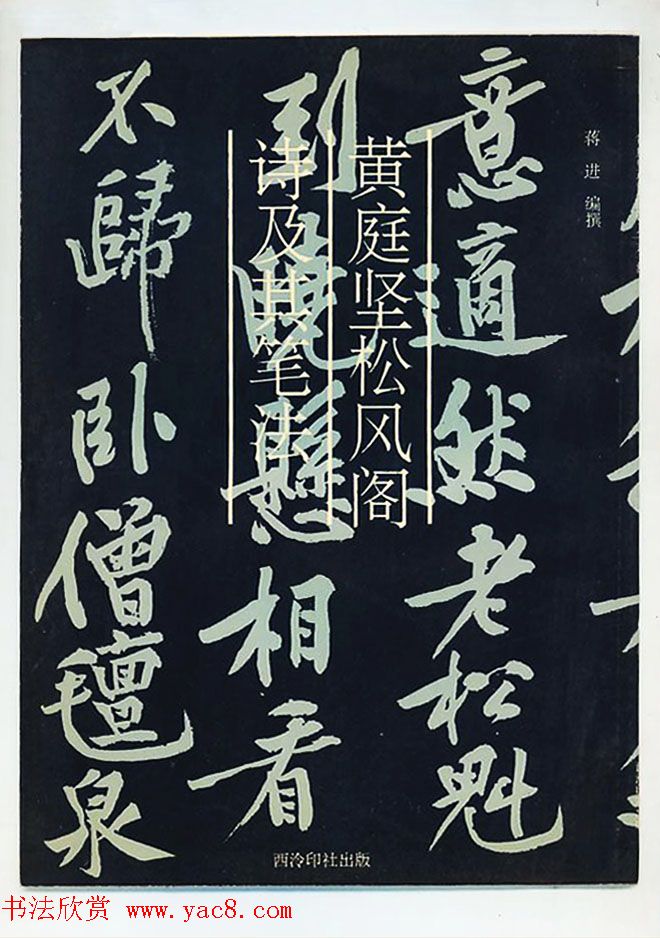 蒋进 编撰
黄庭坚松风阁
诗及其笔法
意適然老松魁
到曉懸相看
不歸卧僧氈泉
西泠印社出版
书法欣赏 www.yac8.com